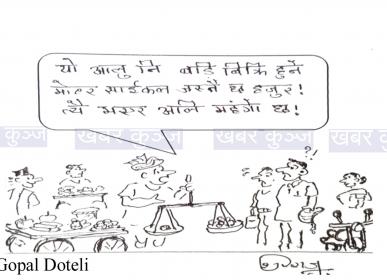 यो आलु नि बढि बिक्रि हुने
मोटर साईकल जस्तै छ हजुर!
त्यै भएर अलि महंगो छ!
खबर कुञ्ज
खबर कुञ्ज
खबर कुञ्ज
?!
Gopal Doteli